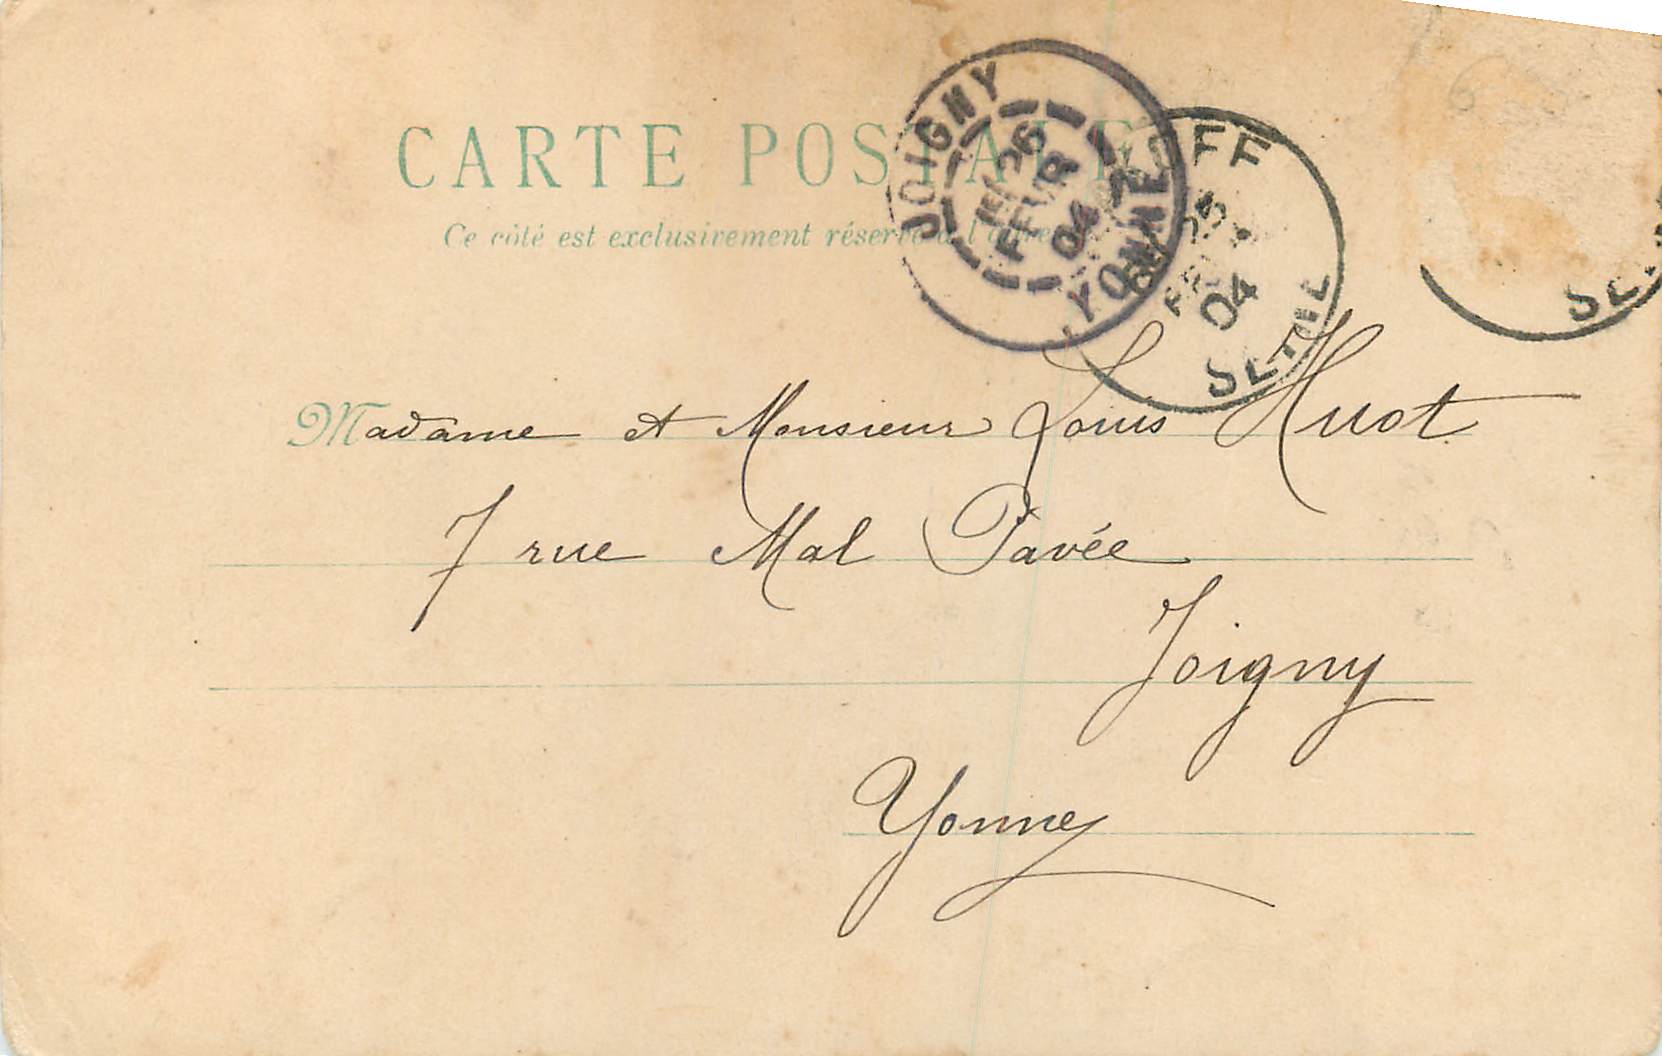 CARTE POSTALE
Ce côté est exclusivement réservé à l'adresse
JOIGNY
26
FEVR
04
YONNE
25
04
Madame et Monsieur Louis Huot
7 rue Mal Pavée
Joigny
Yonne